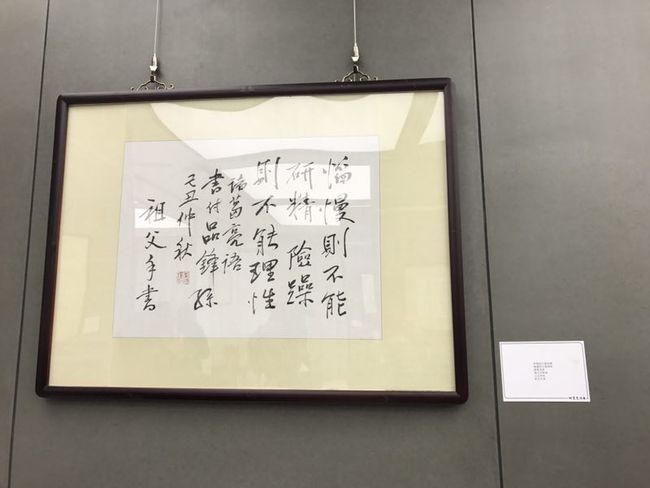 慆慢則不能
研精 險躁
則不能理性
諸葛亮語
書付品鋒孫
己丑仲秋
祖父手書